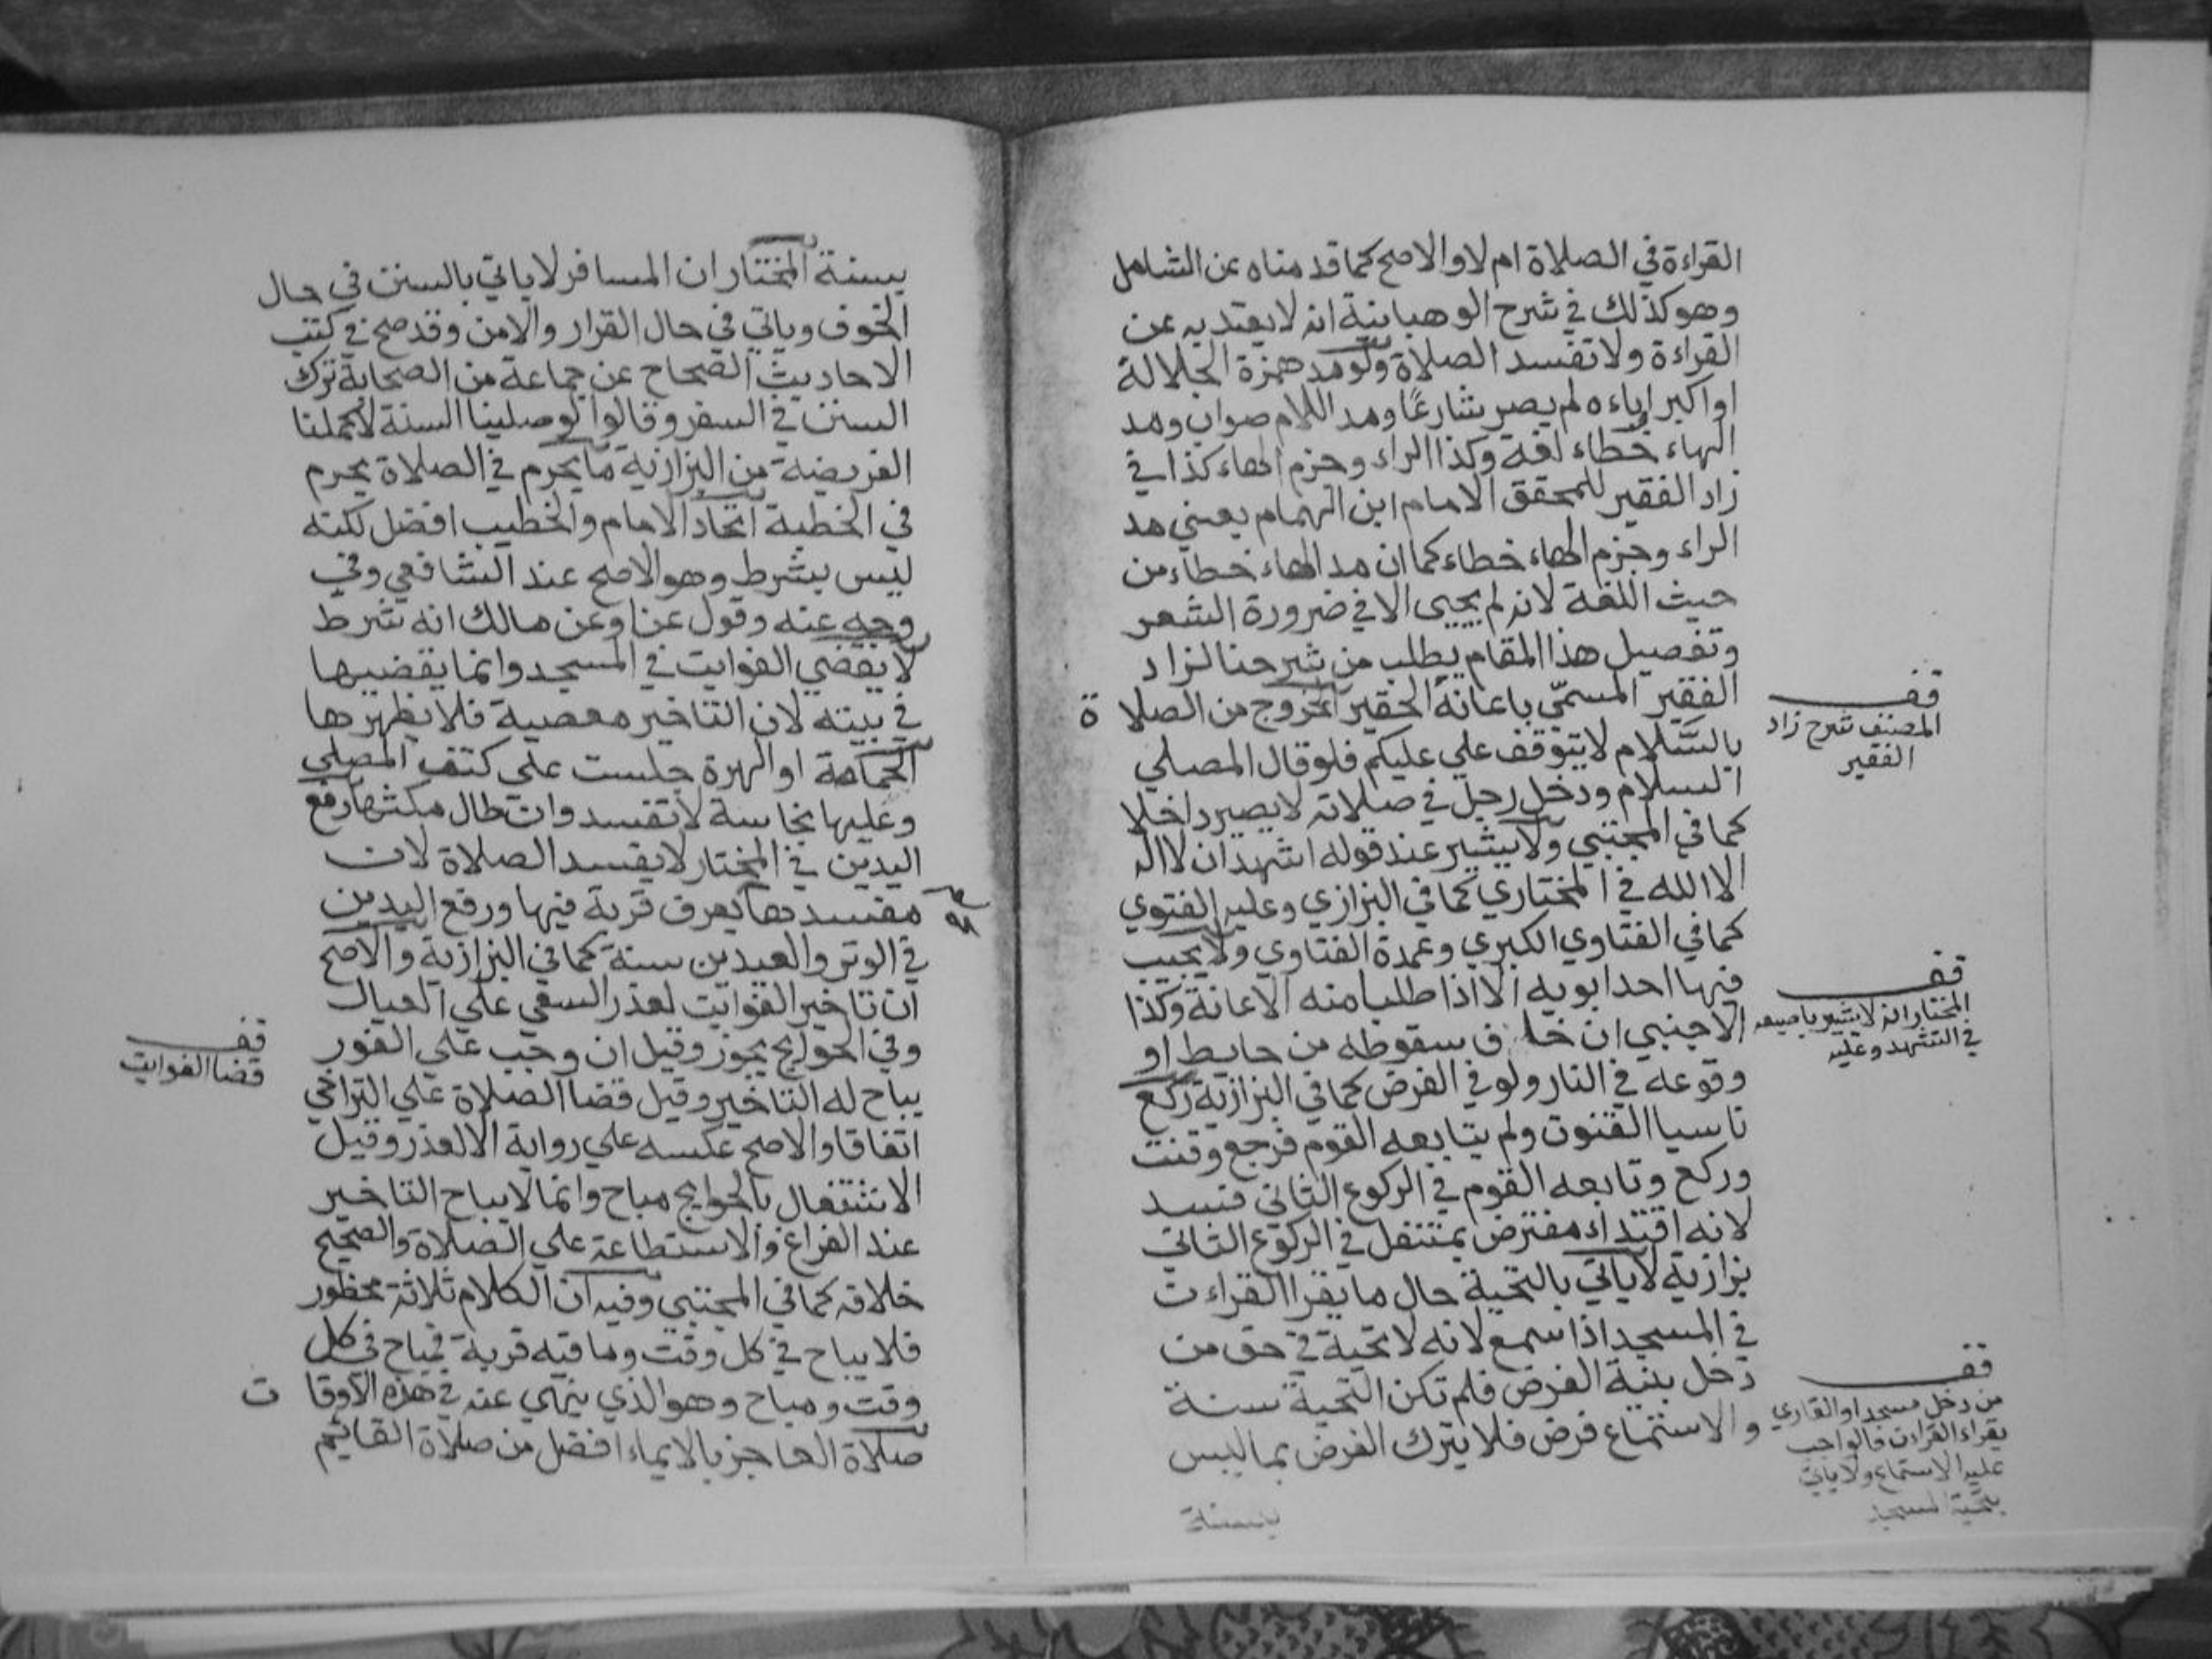 القراءة في الصلاة ام لا والاصح كما قدمناه عن الشامل
وهو كذلك في شرح الوهبانية انه لا يعتد به عن
القراءة ولا تفسد الصلاة ولو مد همزة الجلالة
او اكبر او باءه لم يصر شارعًا ومد اللام صواب ومد
الهاء خطاء لغة وكذا الراء وجزم الهاء كذا في
زاد الفقير للمحقق الامام ابن الهمام يعني مد
الراء وجزم الهاء خطاء كما ان مد الهاء خطاء من
حيث اللغة لانه لم يجيى الا في ضرورة الشعر
وتفصيل هذا المقام يطلب من شرحنا لزاد
الفقير المسمّي باعانة الحقير الخروج من الصلا ة
بالسَّلام لا يتوقف علي عليكم فلو قال المصلي
السلام ودخل رجل في صلاته لا يصير داخلا
كما في المجتبي ولا يشير عند قوله اشهد ان لا اله
الا الله في المختاري كما في البزازي وعليه الفتوي
كما في الفتاوي الكبري وعمدة الفتاوي ولا يجيب
فيها احد ابويه الا اذا طلبا منه الاعانة وكذا
الاجنبي ان خا ف سقوطه من حايط او
وقوعه في النار ولو في الفرض كما في البزازية ركع
ناسيا القنوت ولم يتابعه القوم فرجع وقنت
وركع وتابعه القوم في الركوع الثاني فسد
لانه اقتداء مفترض بمتنفل في الركوع الثاني
بزازية لا ياتي بالتحية حال ما يقرا القراءت
في المسجد اذا سمع لانه لا تحية في حق من
دخل بنية الفرض فلم تكن التحية سنة
والاستماع فرض فلا يترك الفرض بما ليس
بسنة
قف
المصنف شرح زاد
الفقير
قف
المختار انه لا يشير باصبعه
في التشهد وعليه
قف
من دخل مسجدا والقاري
يقراء القران فالواجب
عليه الاستماع ولا ياتي
بتحية المسجد
بسنة المختار ان المسافر لا ياتي بالسنن في حال
الخوف وياتي في حال القرار والامن وقد صح في كتب
الاحاديث الصحاح عن جماعة من الصحابة ترك
السنن في السفر وقالوا لو صلينا السنة لاكملنا
الفريضة من البزازية ما يحرم في الصلاة يحرم
في الخطبة اتحاد الامام والخطيب افضل لكنه
ليس بشرط وهو الاصح عند الشافعي وفي
وجه عنه وقول عنا وعن مالك انه شرط
لا يقضي الفوايت في المسجد وانما يقضيها
في بيته لان التاخير معصية فلا يظهرها
الحمامة او الهرة جلست علي كتف المصلي
وعليها نجاسة لا تفسد وان طال مكثها رفع
اليدين في المختار لا يفسد الصلاة لان
مفسدها يعرف قربة فيها ورفع اليدين
في الوتر والعيدين سنة كما في البزازية والاصح
ان تاخير الفوايت لعذر السعي علي العيال
وفي الحوايج يجوز وقيل ان وجب علي الفور
يباح له التاخير وقيل قضا الصلاة علي التراخي
اتفاقا والاصح عكسه علي رواية الا لعذر وقيل
الاشتغال بالحوايج مباح وانما لا يباح التاخير
عند الفراغ والاستطاعة علي الصلاة والصحيح
خلافه كما في المجتبي وفيه ان الكلام ثلاثة محظور
فلا يباح في كل وقت وما فيه قربة فيباح في كل
وقت ومباح وهو الذي ينهي عنه في هذه الاوقا ت
صلاة العاجز بالايماء افضل من صلاة القائم
قف
قضا الفوايت